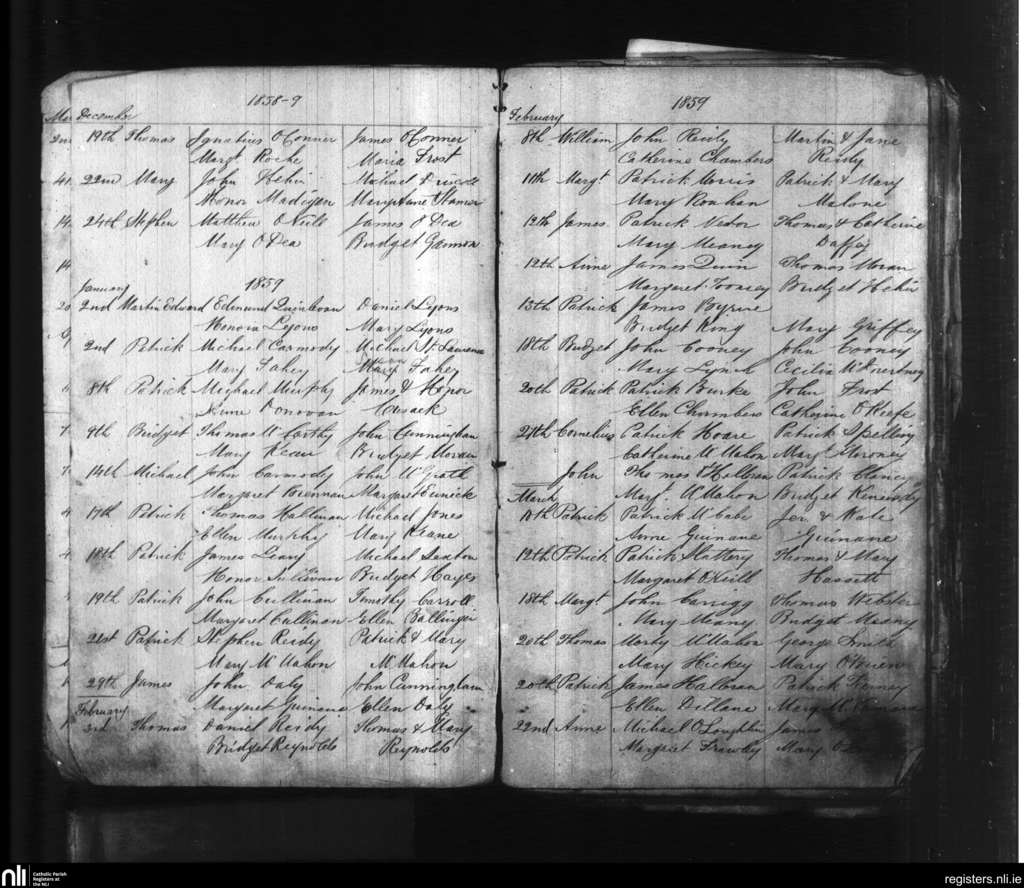 1858-9
Mar December
2nd 19th Thomas Ignatius O'Connor James O'Connor
Margt Roche Maria Frost
41. 22nd Mary John Hehir Michael Driscoll
Honor Madigan Maryanne Stamer
14. 24th Stephen Matthew O'Neill James O'Dea
Mary O'Dea Bridget Gannon
14
January 1859
20 2nd Martin Edward Edmund Quinlivan Daniel Lyons
Honora Lyons Mary Lyons
2nd Patrick Michael Carmody Michael St Lawrence
Mary Fahey Mary Fahey
8th Patrick Michael Murphy James & Honor
Anne Donovan Cusack
7 9th Bridget Thomas McCarthy John Cunningham
Mary Kean Bridget Moran
7. 14th Michael John Carmody John McGrath
Margaret Brennan Margaret
4 17th Patrick Thomas Hallinan Michael Jones
Ellen Murphy Mary Keane
4. 18th Patrick James Leary Michael Sexton
Honor Sullivan Bridget Hayes
19th Patrick John Cullinan Timothy Carroll
Margaret Cullinan Ellen Ballinger
21st Patrick Stephen Reidy Patrick & Mary
Mary McMahon McMahon
29th James John Daly John Cunningham
Margaret Guinane Ellen Daly
February
3rd Thomas Daniel Reidy Thomas & Mary
Bridget Reynolds Reynolds
1859
February
8th William John Reidy Martin & Jane
Catherine Chambers Reidy
11th Margt Patrick Morris Patrick & Mary
Mary Rouhan Malone
12th James Patrick Thomas & Catherine
Mary Meaney Daffy
12th Anne James Quin Thomas Moran
Margaret Toomey Bridget Hehir
13th Patrick James Byrne
Bridget King Mary Griffey
18th Bridget John Cooney John Cooney
Mary Lynch Cecilia
20th Patrick Patrick Burke John Frost
Ellen Chambers Catherine O'Keefe
27th Cornelius Patrick Hoare Patrick Spelling
Catherine McMahon Mary Moroney
John Thomas O'Halloran Patrick Clancy
March Mary McMahon Bridget Kennedy
10th Patrick Patrick McCabe Jer. & Kate
Anne Guinane Guinane
12th Patrick Patrick Slattery Thomas & Mary
Margaret O'Neill Hassett
18th Margt John Carrigg Thomas Webster
Mary Meany Bridget Meany
20th Thomas Morty McMahon George Smith
Mary Hickey Mary O'Brien
20th Patrick James Halloran Patrick
Ellen Dillane Mary
22nd Anne Michael O'Loughlin James
Margaret Frawley Mary
nli
Catholic Parish
Registers at
the NLI
registers.nli.ie